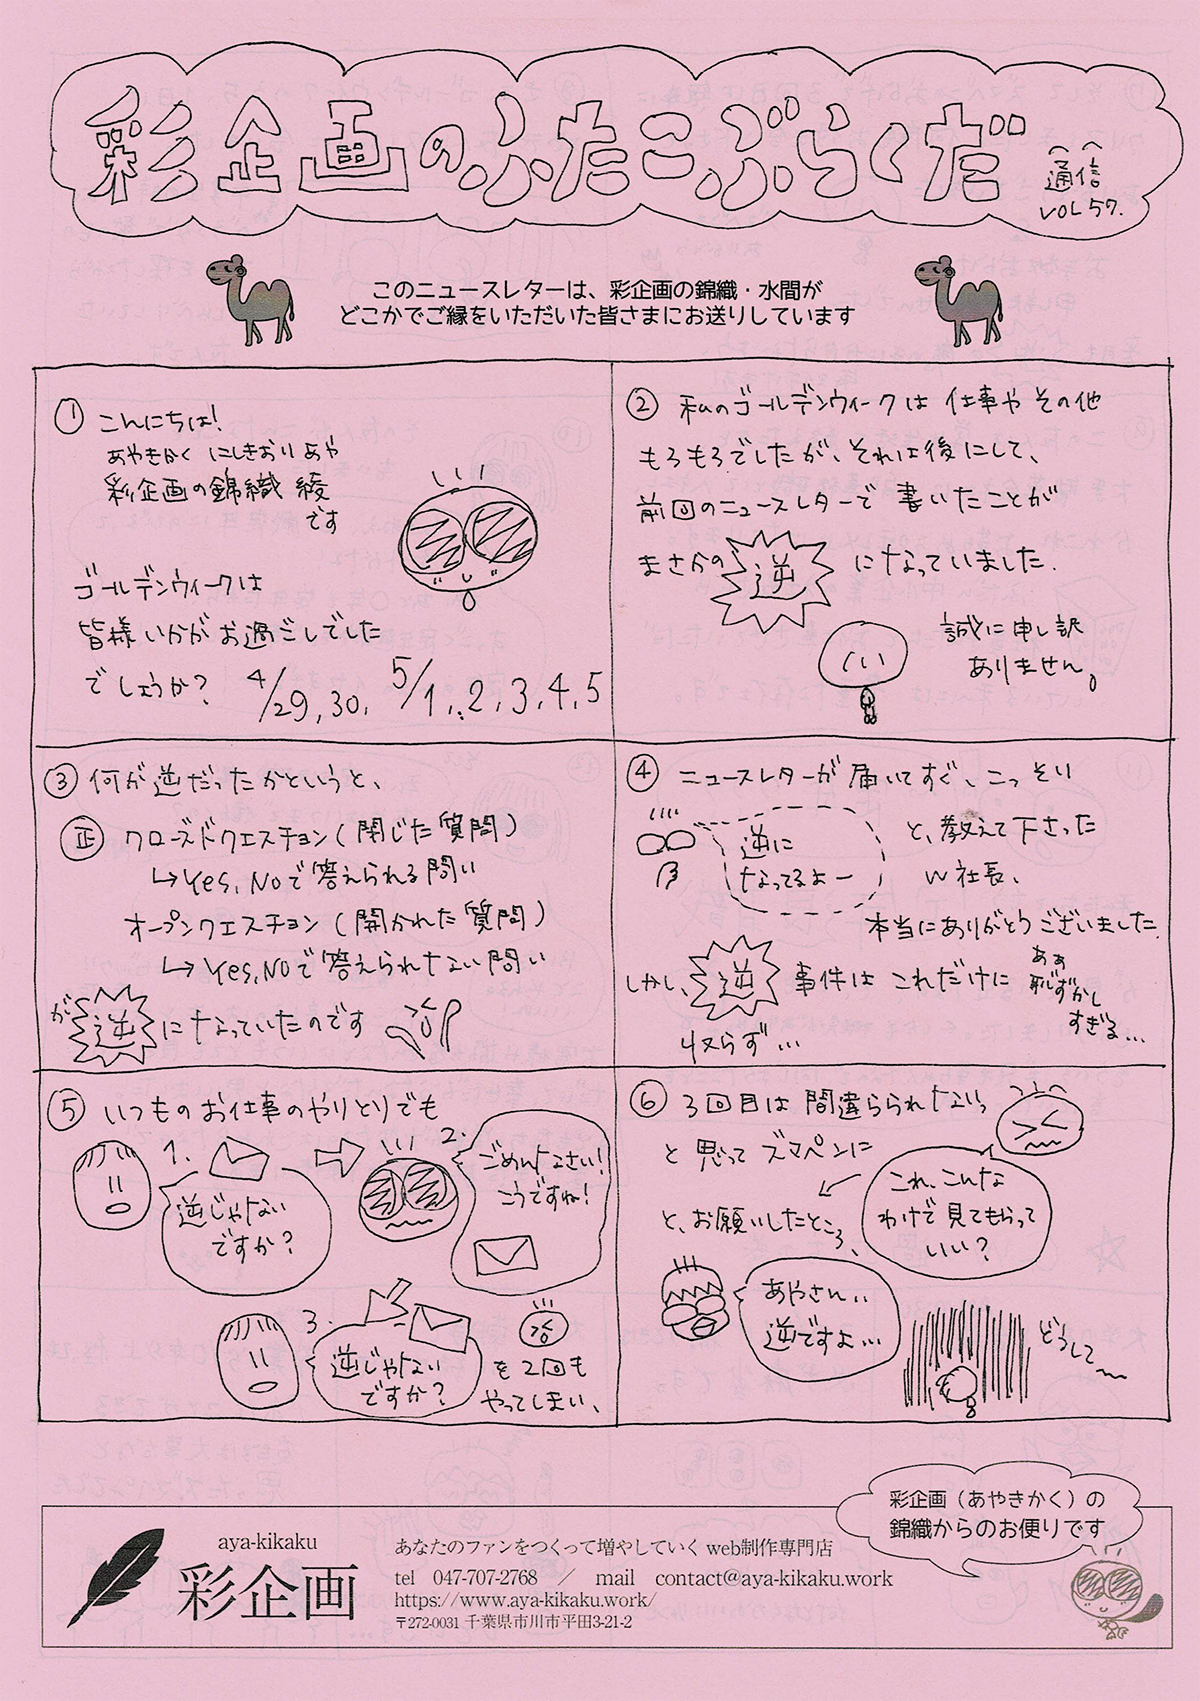 彩企画のふたこぶらくだ
通信
VOL 57.
このニュースレターは、彩企画の錦織・水間が
どこかでご縁をいただいた皆さまにお送りしています
① こんにちは!
あやきかく にしきおり あや
彩企画の錦織 綾
です
ゴールデンウィークは
皆様いかがお過ごしでした
でしょうか?
4/29, 30, 5/1, 2, 3, 4, 5
② 私のゴールデンウィークは 仕事や その他
もろもろでしたが、それは後にして、
前回のニュースレターで 書いたことが
まさかの 逆 になっていました.
誠に申し訳
ありません。
③ 何が逆だったかというと、
正 クローズドクエスチョン(閉じた質問)
↳ Yes, Noで答えられる問い
オープンクエスチョン(開かれた質問)
↳ Yes, Noで答えられない問い
が 逆 になっていたのです
④ ニュースレターが届いてすぐ、こっそり
逆に
なってるよー
と、教えて下さった
W社長、
本当にありがとうございました.
しかし、逆 事件は これだけに
収らず…
ああ
恥ずかし
すぎる…
⑤ いつものお仕事のやりとりでも
1.
逆じゃない
ですか?
2.
ごめんなさい!
こうですね!
3.
逆じゃない
ですか?
を2回も
やってしまい、
⑥ 3回目は間違うられないっ
と思って ズマペンに
これ、こんな
わけで見てもらって
いい?
と、お願いしたところ、
あやさん..
逆ですよ…
どうして〜
彩企画(あやきかく)の
錦織からのお便りです
aya-kikaku
彩企画
あなたのファンをつくって増やしていく web制作専門店
tel 047-707-2768 / mail contact@aya-kikaku.work
https://www.aya-kikaku.work/
〒272-0031 千葉県市川市平田3-21-2